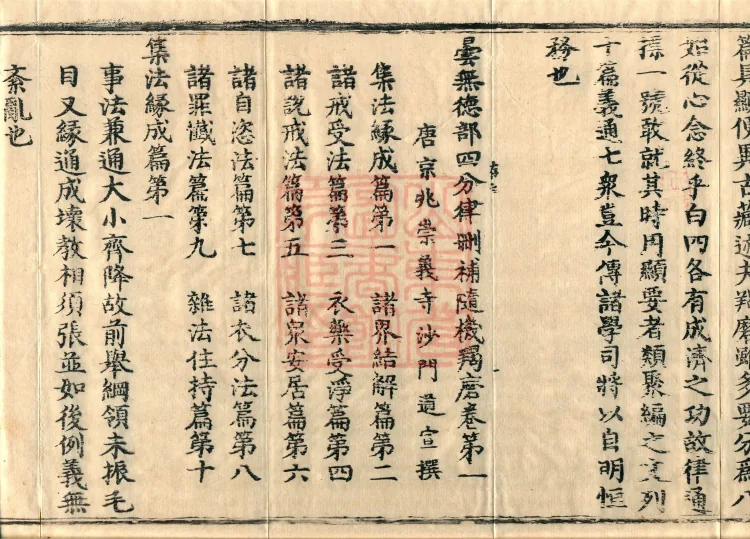 篇具顯便異古藏迹夫羯磨雖多要分爲八
始從心念終乎白四各有成濟之功故律通
標一號敢就其時用顯要者類聚編之文列
十篇義通七衆豈今傳諸學司將以自明恒
務也
曇無德部四分律刪補隨機羯磨卷第一
唐京兆崇義寺沙門道宣撰
集法緣成篇第一 諸界結解篇第二
諸戒受法篇第三 衣藥受淨篇第四
諸說戒法篇第五 諸衆安居篇第六
諸自恣法篇第七 諸衣分法篇第八
諸罪懺法篇第九 雜法住持篇第十
集法緣成篇第一
事法兼通大小齊降故前舉綱領未振毛
目又緣通成壞教相須張並如後例義無
紊亂也